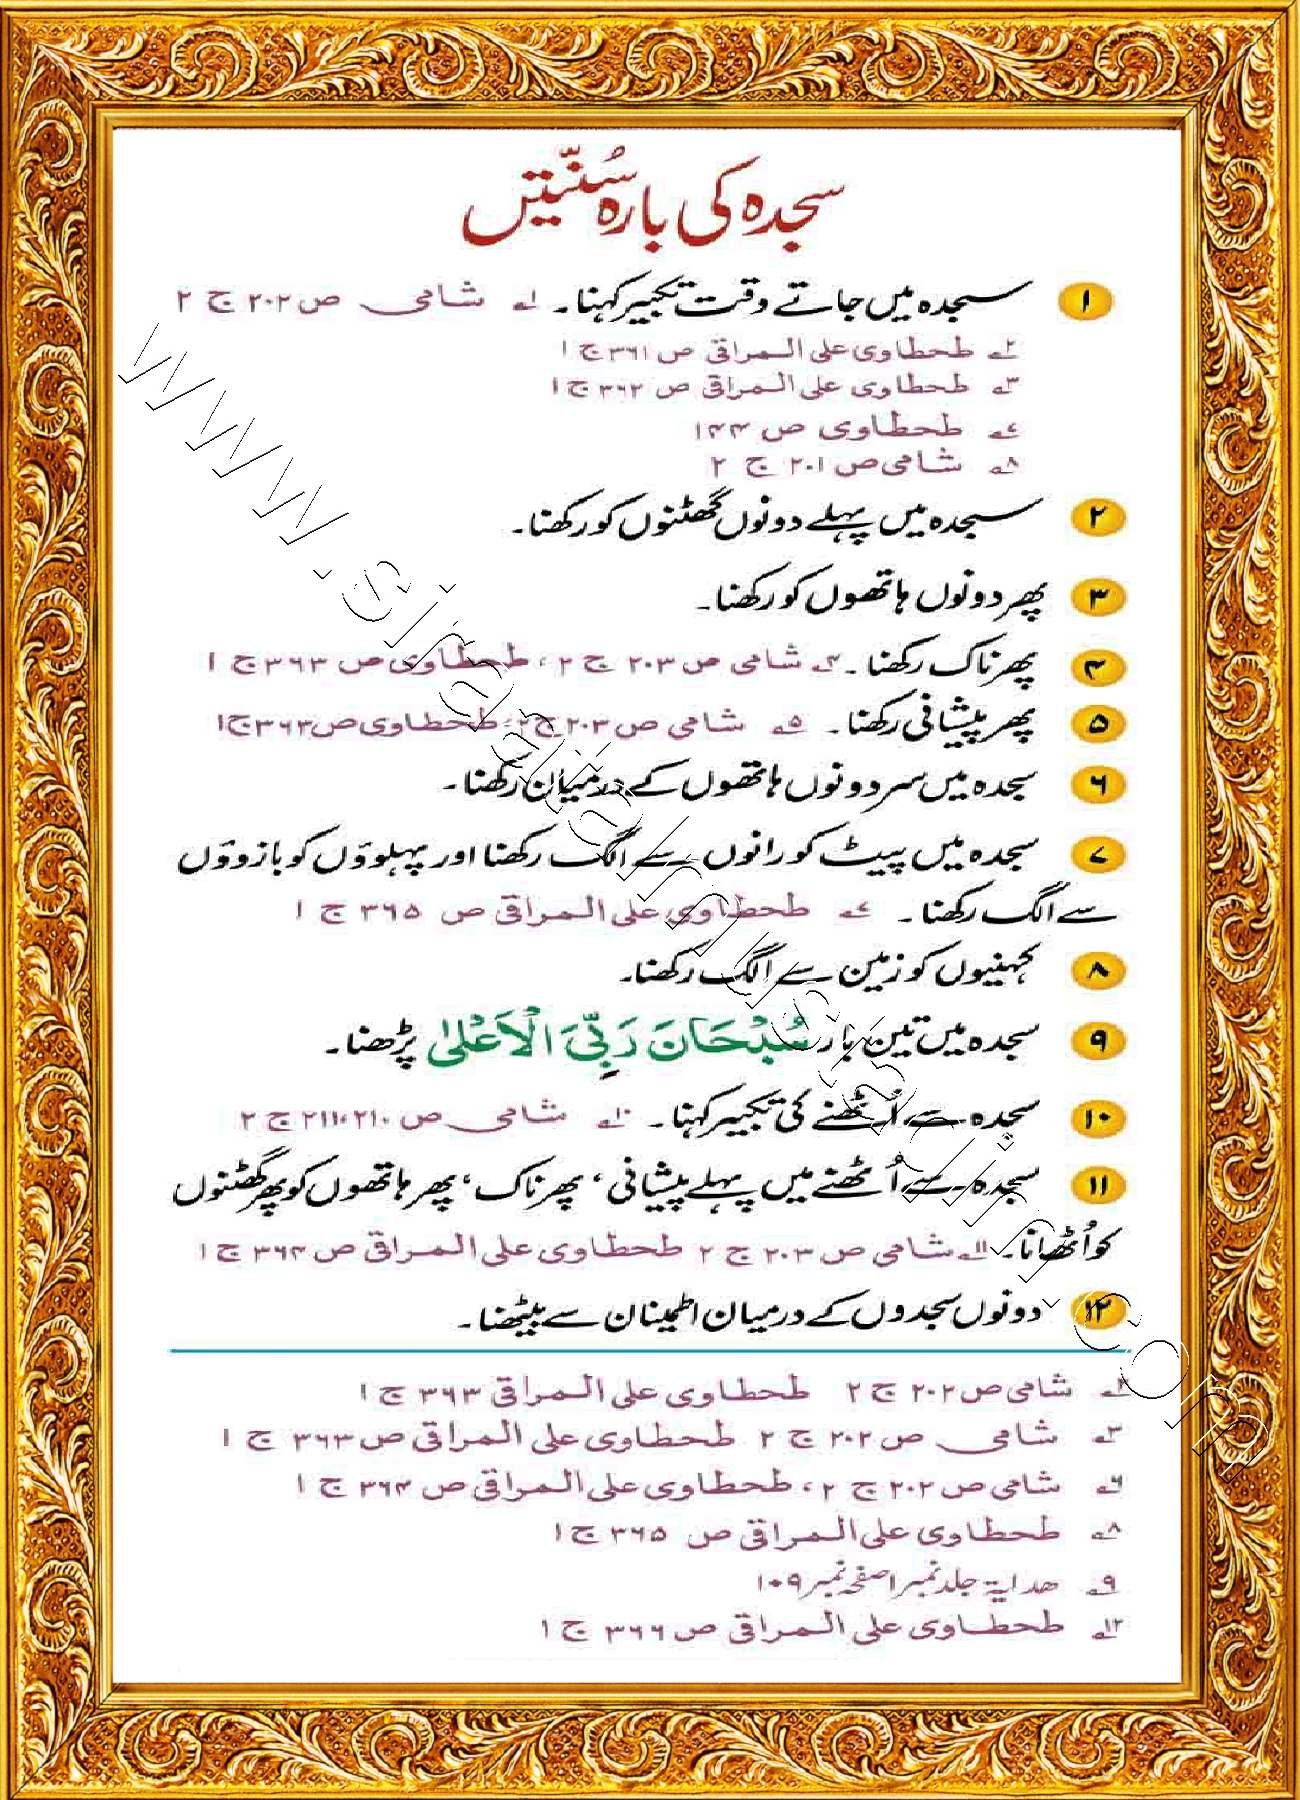 سجدہ کی بارہ سُنّتیں
۱ سجدہ میں جاتے وقت تکبیر کہنا۔ ۱ے شامی ص ۲۰۲ ج ۲
۲ے طحطاوی علی المراقی ص ۳۶۱ ج ۱
۳ے طحطاوی علی المراقی ص ۳۶۲ ج ۱
۷ے طحطاوی ص ۱۴۴
۸ے شامی ص ۲۰۱ ج ۲
۲ سجدہ میں پہلے دونوں گھٹنوں کو رکھنا۔
۳ پھر دونوں ہاتھوں کو رکھنا۔
۴ پھر ناک رکھنا۔ ۴ے شامی ص ۲۰۳ ج ۲، طحطاوی ص ۳۶۳ ج ۱
۵ پھر پیشانی رکھنا۔ ۵ے شامی ص ۲۰۳ ج ۲، طحطاوی ص ۳۶۳ ج ۱
۶ سجدہ میں سر دونوں ہاتھوں کے درمیان رکھنا۔
۷ سجدہ میں پیٹ کو رانوں سے الگ رکھنا اور پہلوؤں کو بازوؤں
سے الگ رکھنا۔ ۷ے طحطاوی علی المراقی ص ۳۶۵ ج ۱
۸ کہنیوں کو زمین سے الگ رکھنا۔
۹ سجدہ میں تین بار سُبْحَانَ رَبِّیَ الْاَعْلیٰ پڑھنا۔
۱۰ سجدہ سے اُٹھنے کی تکبیر کہنا۔ ۱۰ے شامی ص ۲۱۰،۲۱۱ ج ۲
۱۱ سجدہ سے اُٹھنے میں پہلے پیشانی، پھر ناک، پھر ہاتھوں کو پھر گھٹنوں
کو اُٹھانا۔ ۱۱ے شامی ص ۲۰۳ ج ۲ طحطاوی علی المراقی ص ۳۶۴ ج ۱
۱۲ دونوں سجدوں کے درمیان اطمینان سے بیٹھنا۔
۲ے شامی ص ۲۰۲ ج ۲ طحطاوی علی المراقی ۳۶۳ ج ۱
۳ے شامی ص ۲۰۲ ج ۲ طحطاوی علی المراقی ص ۳۶۳ ج ۱
۶ے شامی ص ۲۰۲ ج ۲، طحطاوی علی المراقی ص ۳۶۴ ج ۱
۸ے طحطاوی علی المراقی ص ۳۶۵ ج ۱
۹ے ھدایۃ جلد نمبر ۱ صفحہ نمبر ۱۰۹
۱۲ے طحطاوی علی المراقی ص ۳۶۶ ج ۱